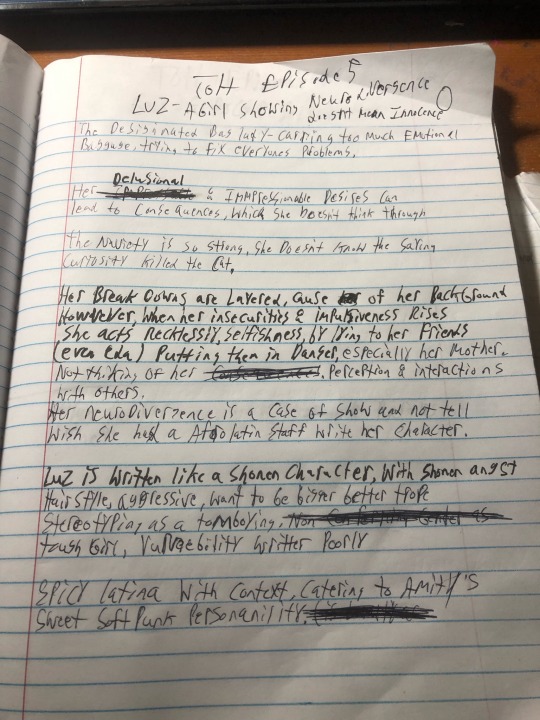 TOH Episode 5
LUZ - A Girl Showing Neurodivergence
doesnt Mean Innocence
The Designated Bag lady - Carring too Much Emotional
Baggage, trying to fix everyones Problems.
Delusional
Her & Impressionable Desires Can
lead to Consequences, which she doesnt think through
the Naviety is so strong, she Doesnt know the saying
Curiosity killed the Cat.
Her Break Downs are Layered, cause of her Background
However, when her insecurities & Impulsiveness Rises
she acts recklessly, selfishness, by lying to her Friends
(even Eda) Putting them in Danger, especially her Mother.
Not thiking of her , Perception & interactions
with others.
Her neuroDivergence is a Case of show and not tell
Wish she had a Afrolatin Staff write her Character.
LUZ is written like a Shonen Character, With Shonen angst
Hairstyle, aggressive, want to be bigger better trope
Stereotyping as a tomboying,
tough Girl, Vulnrebility writter Poorly
Spicy latina with Context, Catering to Amity's
Sweet Soft Punk Personanility.